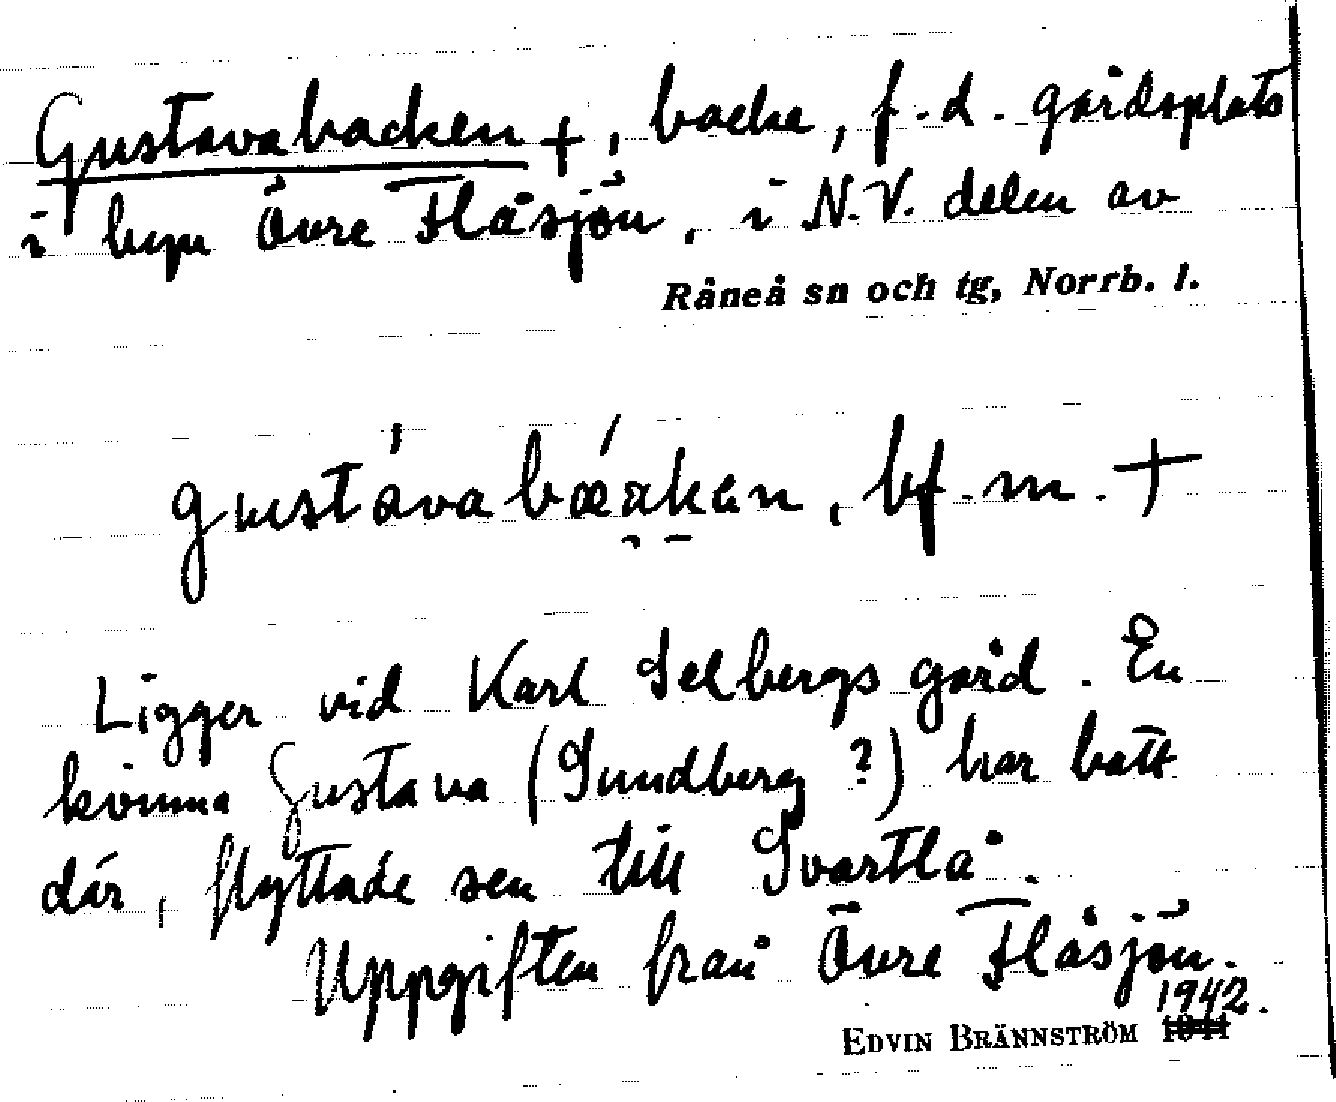 Gustavabacken +, backe, f.d. gårdsplats
i byn Övre Flåsjön, i N.V. delen av
Råneå sn och tg, Norrb. l.
gustávabáakan, bf. m. +
Ligger vid Karl Selbergs gård. En
kvinna Gustava (Sundberg?) har bott
där, flyttade sen till Svartlå.
Uppgiften från Övre Flåsjön.
1942.
EDVIN BRÄNNSTRÖM 1941